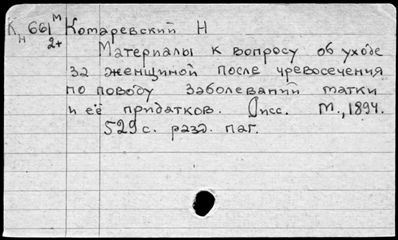 Кн 661 М Комаревский Н
2+
Материалы к вопросу об уходе
за женщиной после чревосечения
по поводу заболеваний матки
и её придатков. Дисс. М., 1894.
529 с. разд. паг.